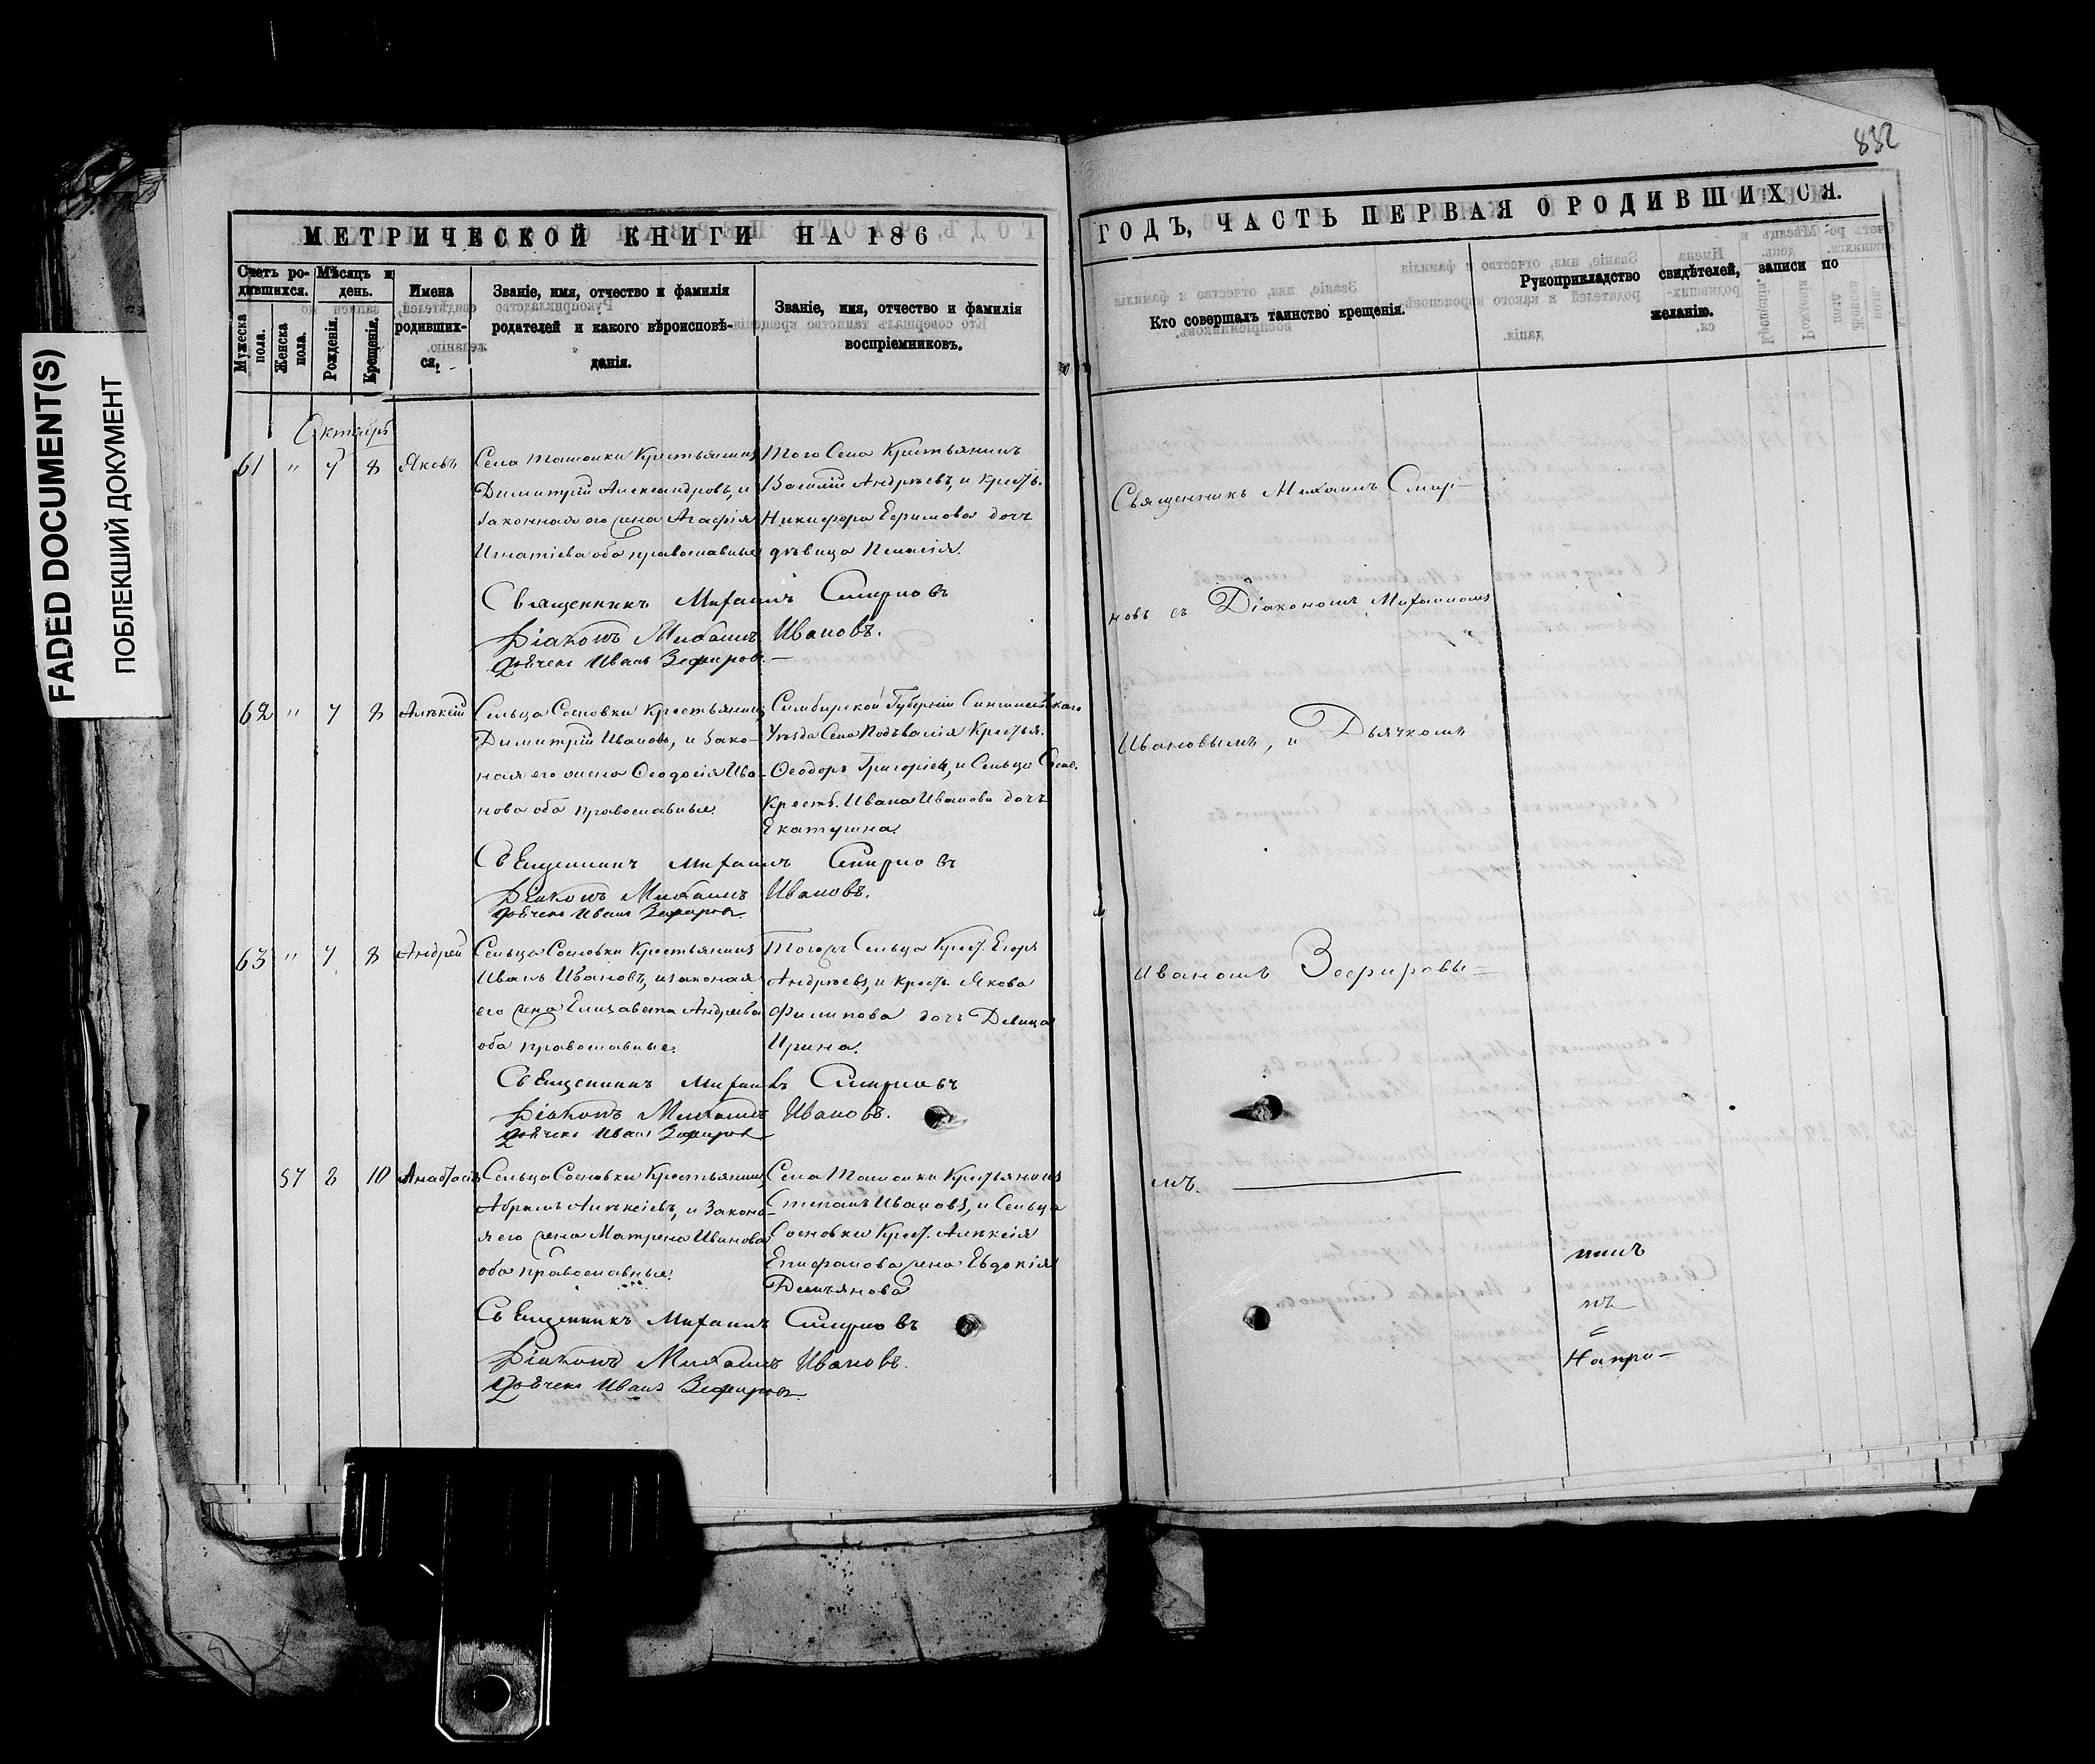 FADED DOCUMENT(S)
ПОБЛЕКШИЙ ДОКУМЕНТ
832
МЕТРИЧЕСКОЙ КНИГИ НА 186
ГОДЪ, ЧАСТЬ ПЕРВАЯ О РОДИВШИХСЯ.
Счетъ ро-
дившихся.
Мужеска пола.
Женска пола.
Мѣсяцъ и
день.
Рожденія.
Крещенія.
Имена
родивших-
ся.
Званіе, имя, отчество и фамилія
родителей и какого вѣроисповѣ-
данія.
Званіе, имя, отчество и фамилія
воспріемниковъ.
Кто совершалъ таинство крещенія.
Рукоприкладство свидѣтелей, записи по
желанію.
Октябрь
61 " 7 8 Яковъ
Села Ташолки Крестьянинъ
Димитрій Александровъ, и
законная его жена Агафія
Игнатіева оба православные
Того Села Крестьянинъ
Василій Андрѣевъ, и Крестъ.
Никифора Ефимова дочь
дѣвица Пелагія.
Священникъ Михаилъ Смирновъ
Діаконъ Михаилъ Ивановъ.
Дьячекъ Иванъ Зефировъ.
62 " 7 8 Алѣксій
Сельца Сосновки Крестьянинъ
Димитрій Ивановъ, и зако-
ная его жена Ѳеодосія Ива-
нова оба православные.
Симбирской Губерніи Сингилейскаго
Уѣзда Села Подъвалія Крестья.
Ѳеодоръ Григоріевъ, и Сельца Сосно.
Крестъ. Ивана Иванова дочь
Екатерина.
Священникъ Михаилъ Смирновъ
Діаконъ Михаилъ Ивановъ.
Дьячекъ Иванъ Зефировъ
63 " 7 8 Андрей
Сельца Сосновки Крестьянинъ
Иванъ Ивановъ, изаконая
его жена Елизавета Андреева
оба православные.
Тогожъ Сельца Крест. Егоръ
Андрѣевъ, и крестъ. Якова
Филипова дочь Девица
Ирина.
Священникъ Михаилъ Смирновъ
Діаконъ Михаилъ Ивановъ.
Дьячекъ Иванъ Зефировъ
57 8 10 Анастасія
Сельца Сосновки Крестьянинъ
Абрамъ Алѣксіевъ, и Закона-
я его жена Матрена Иванова
оба православные.
Села Ташолки Крестьянинъ
Степанъ Ивановъ, и Сельца
Сосновки Крест. Алѣксія
Епифанова жена Евдокія
Демъянова
Священникъ Михаилъ Смирновъ
Діаконъ Михаилъ Ивановъ.
Дьячекъ Иванъ Зефировъ
Священникъ Михаилъ Смир-
новъ съ Діакономъ Михаиломъ
Ивановымъ, и Дьячкомъ
Иваномъ Зефировы-
мъ.
Напри-